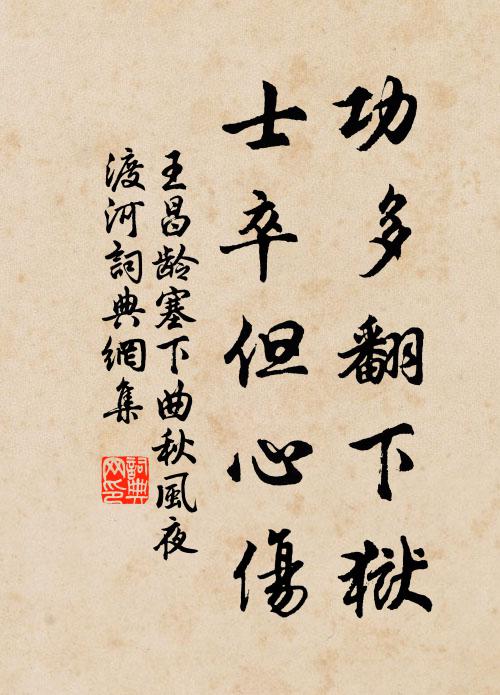 功多翻下獄
士卒但心傷
王昌齡塞下曲秋風夜
渡河詞典網集
詞典
网印